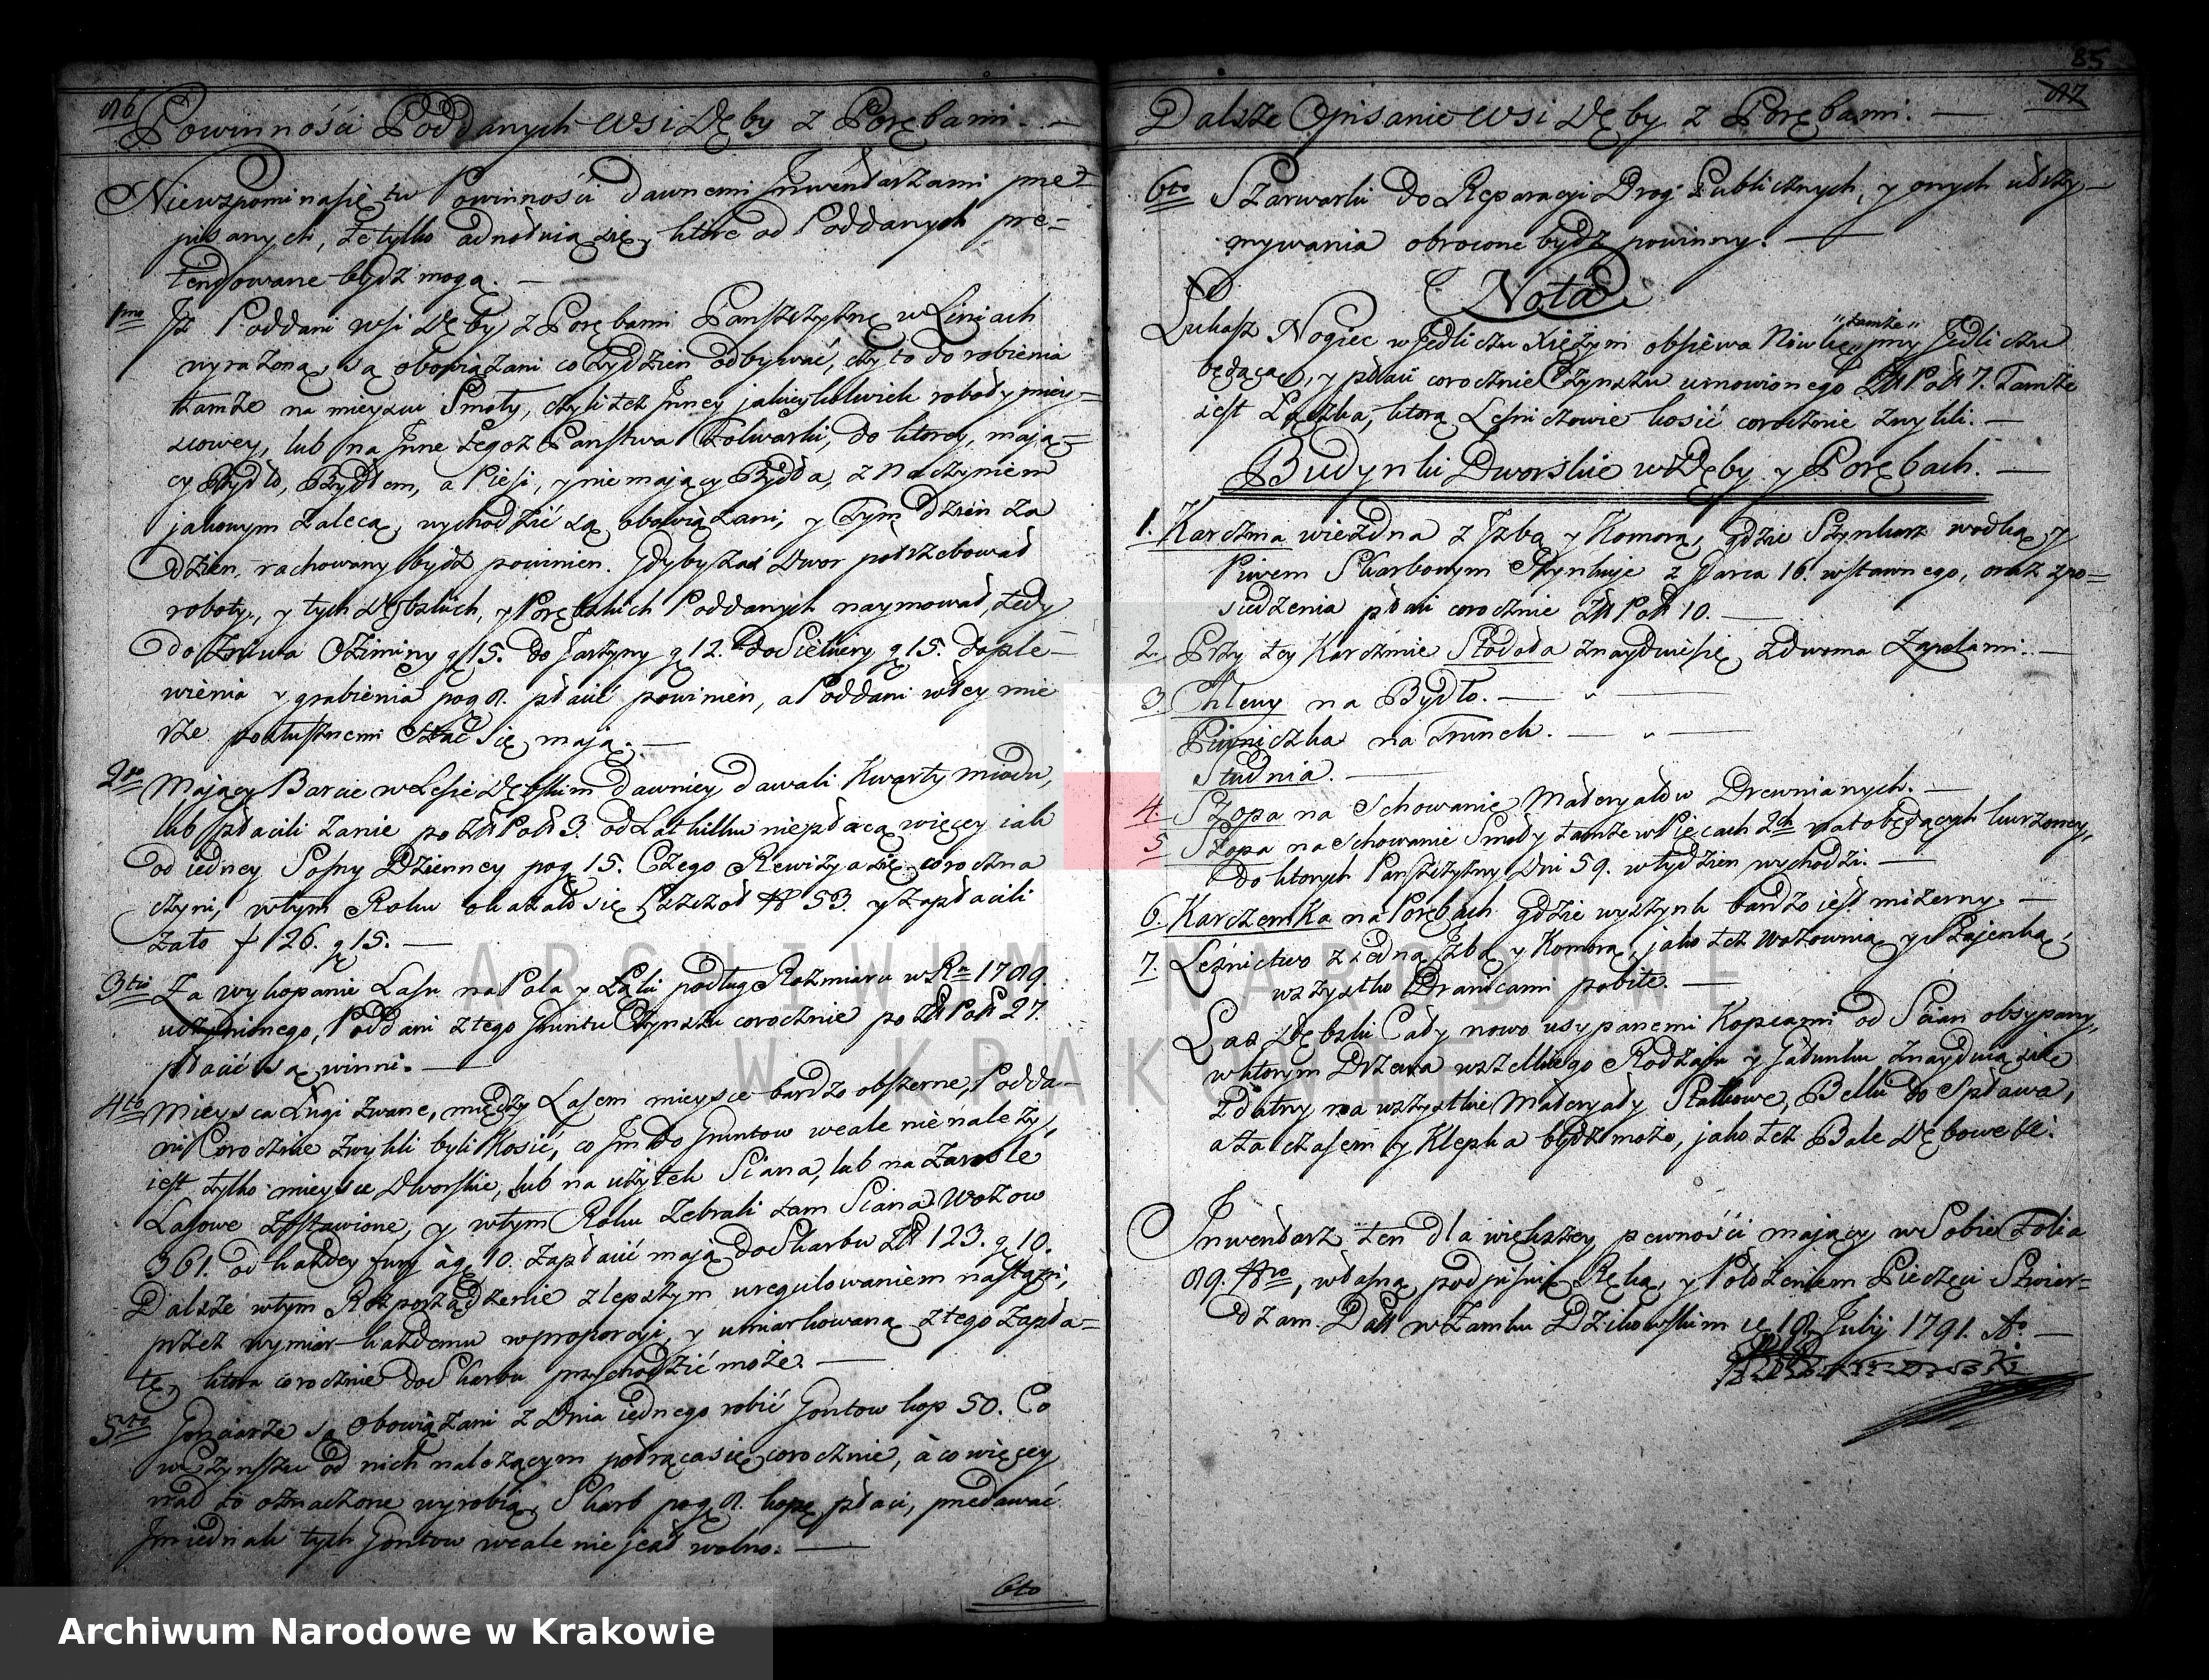 86
Powinności Poddanych wsi Dęby z Porębami. —
Niewzpomina się tu Powinności dawnemi Inwentarzami prze=
pisanych, te tylko adnotuią się, które od Poddanych pre=
tendowane bydź mogą. —
1mo Iż Poddani wsi Dęby z Porębami Panszczyznę w Liniach
wyrażoną, są obowiązani co Tydzień odbywać, czy to do robienia
tamże na mieyscu Smoły, czyli też Inney jakieykolwiek roboty miey=
scowey, lub na Inne tegoż Państwa Folwarki, do ktorey, mają=
cy Bydło, Bydłem, a Piesi, y nie mający Bydła, z Naczyniem
jakowym zalecą, wychodzić są obowiązani, y Tym dzień za
dzień, rachowany bydź powinien. Gdyby zaś Dwor potrzebował
roboty, y tych Dębskich, y Porębskich Poddanych naymował, tedy
do Żniwa Oziminy g 15. do Jarzyny g 12. do Sieczkiery g 15. do ple=
wienia y grabienia po g 8. płacić powinien, a Poddani w tey mie
rze posłusznemi stać się mają. —
2do Mający Barcie w Lesie Dębskim dawniey dawali Kwarty miodu,
lub płacili za nie po Zł Pol 3. od Lat kilku nie płacą więcey iak
od iedney Sosny Dzienney po g 15. Czego Rewizya się coroczna
czyni, w tym Roku okazało się Pszczoł No 53. y zapłacili
za to f 26. g 15. —
3tio Za wykopanie Lasu na Pola y Łąki podług Rozmiaru w Rn 1789.
uczynionego, Poddani z tego Gruntu Czynszu corocznie po Zł Pol 27.
płacić są winni. —
4to Mieysca Ługi zwane, między Lasem mieysce bardzo obszerne, Podda=
ni Corocznie zwykli byli Kosić, co Im do Gruntow wcale nie należy,
iest tylko mieysce Dworskie, lub na użytek Siana, lub na zarosłe
Lasowe zostawione, y w tym Roku zebrali tam Siana Wozow
361. od każdey fury à g 10. zapłacić mają do Skarbu Zł 123. g 10.
Dalsze w tym Rozporządzenie z lepszym uregulowaniem nastąpi,
przez wymiar każdemu w proporcyi, y umiarkowaną z tego zapła=
tę, ktora corocznie do Skarbu przychodzić może. —
5to Gonciarze są Obowiązani z Dnia iednego robić Gontow kop 50. Co
w Czynszu od nich należącym potrąca się corocznie, à co więcey
nad to oznaczone wyrobią, Skarb po g 8. kopę płaci, przedawać
Im iednak tych Gontow wcale nie jest wolno. —
6to
85
87
Dalsze Opisanie wsi Dęby z Porębami. —
6to Szarwarki do Reparacyi Drog Publicznych, y onych utrzy=
mywania obrocone bydź powinny. —
Nota
Łukasz Nogiec w Jedliczu Xiężym obsiewa Niwkę "tamże" przy Jedliczu
będącą, y płaci corocznie Czynszu umowionego Zł Pol 7. Tamże
iest Łączka, ktorą Leśniczowie kosić corocznie zwykli. —
Budynki Dworskie w Dęby y Porębach. —
1. Karczma wiezdna z Izbą y Komorą, gdzie Szynkarz wodką y
Piwem Skarbowym Szynkuje z Garca 16. wstawnego, oraz z po=
siedzenia płaci corocznie Zł Pol 10. —
2. Przy tey Karczmie Stodoła znayduie się, z dwoma Zapolami. —
3. Chlewy na Bydło. — " —
Piwniczka na Trunek. — " —
Studnia. —
4. Szopa na Schowanie Materyałow Drewnianych. —
5 Szopa na Schowanie Smoły tamże w Piecach 2ch na to będących kurzoney,
do ktorych Panszczyzny Dni 59. w tydzien wychodzi. —
6. Karczemka na Porębach gdzie wyszynk bardzo iest mizerny. —
7. Leśnictwo z iedną Izbą y Komorą, jako też Wozownią y Stajenką,
wszystko Dranicami pobite. —
Las Dębski Cały nowo usypanemi Kopcami od Scian obsypany,
w ktorym Drzewa wszelkiego Rodzaju y Gatunku znayduią się
zdatny na wszystkie Materyały Statkowe, Belki do Spławu,
a za czasem y Klepka bydź może, jako też Bale Dębowe &c.
Inwentarz ten dla większey pewności mający w Sobie Folia
89. Nro, własną podpisuię Ręką, y Położeniem Pieczęci Stwier=
dzam. Datt w Zamku Dzikowskim d 18. Julij 1791. Ao. —